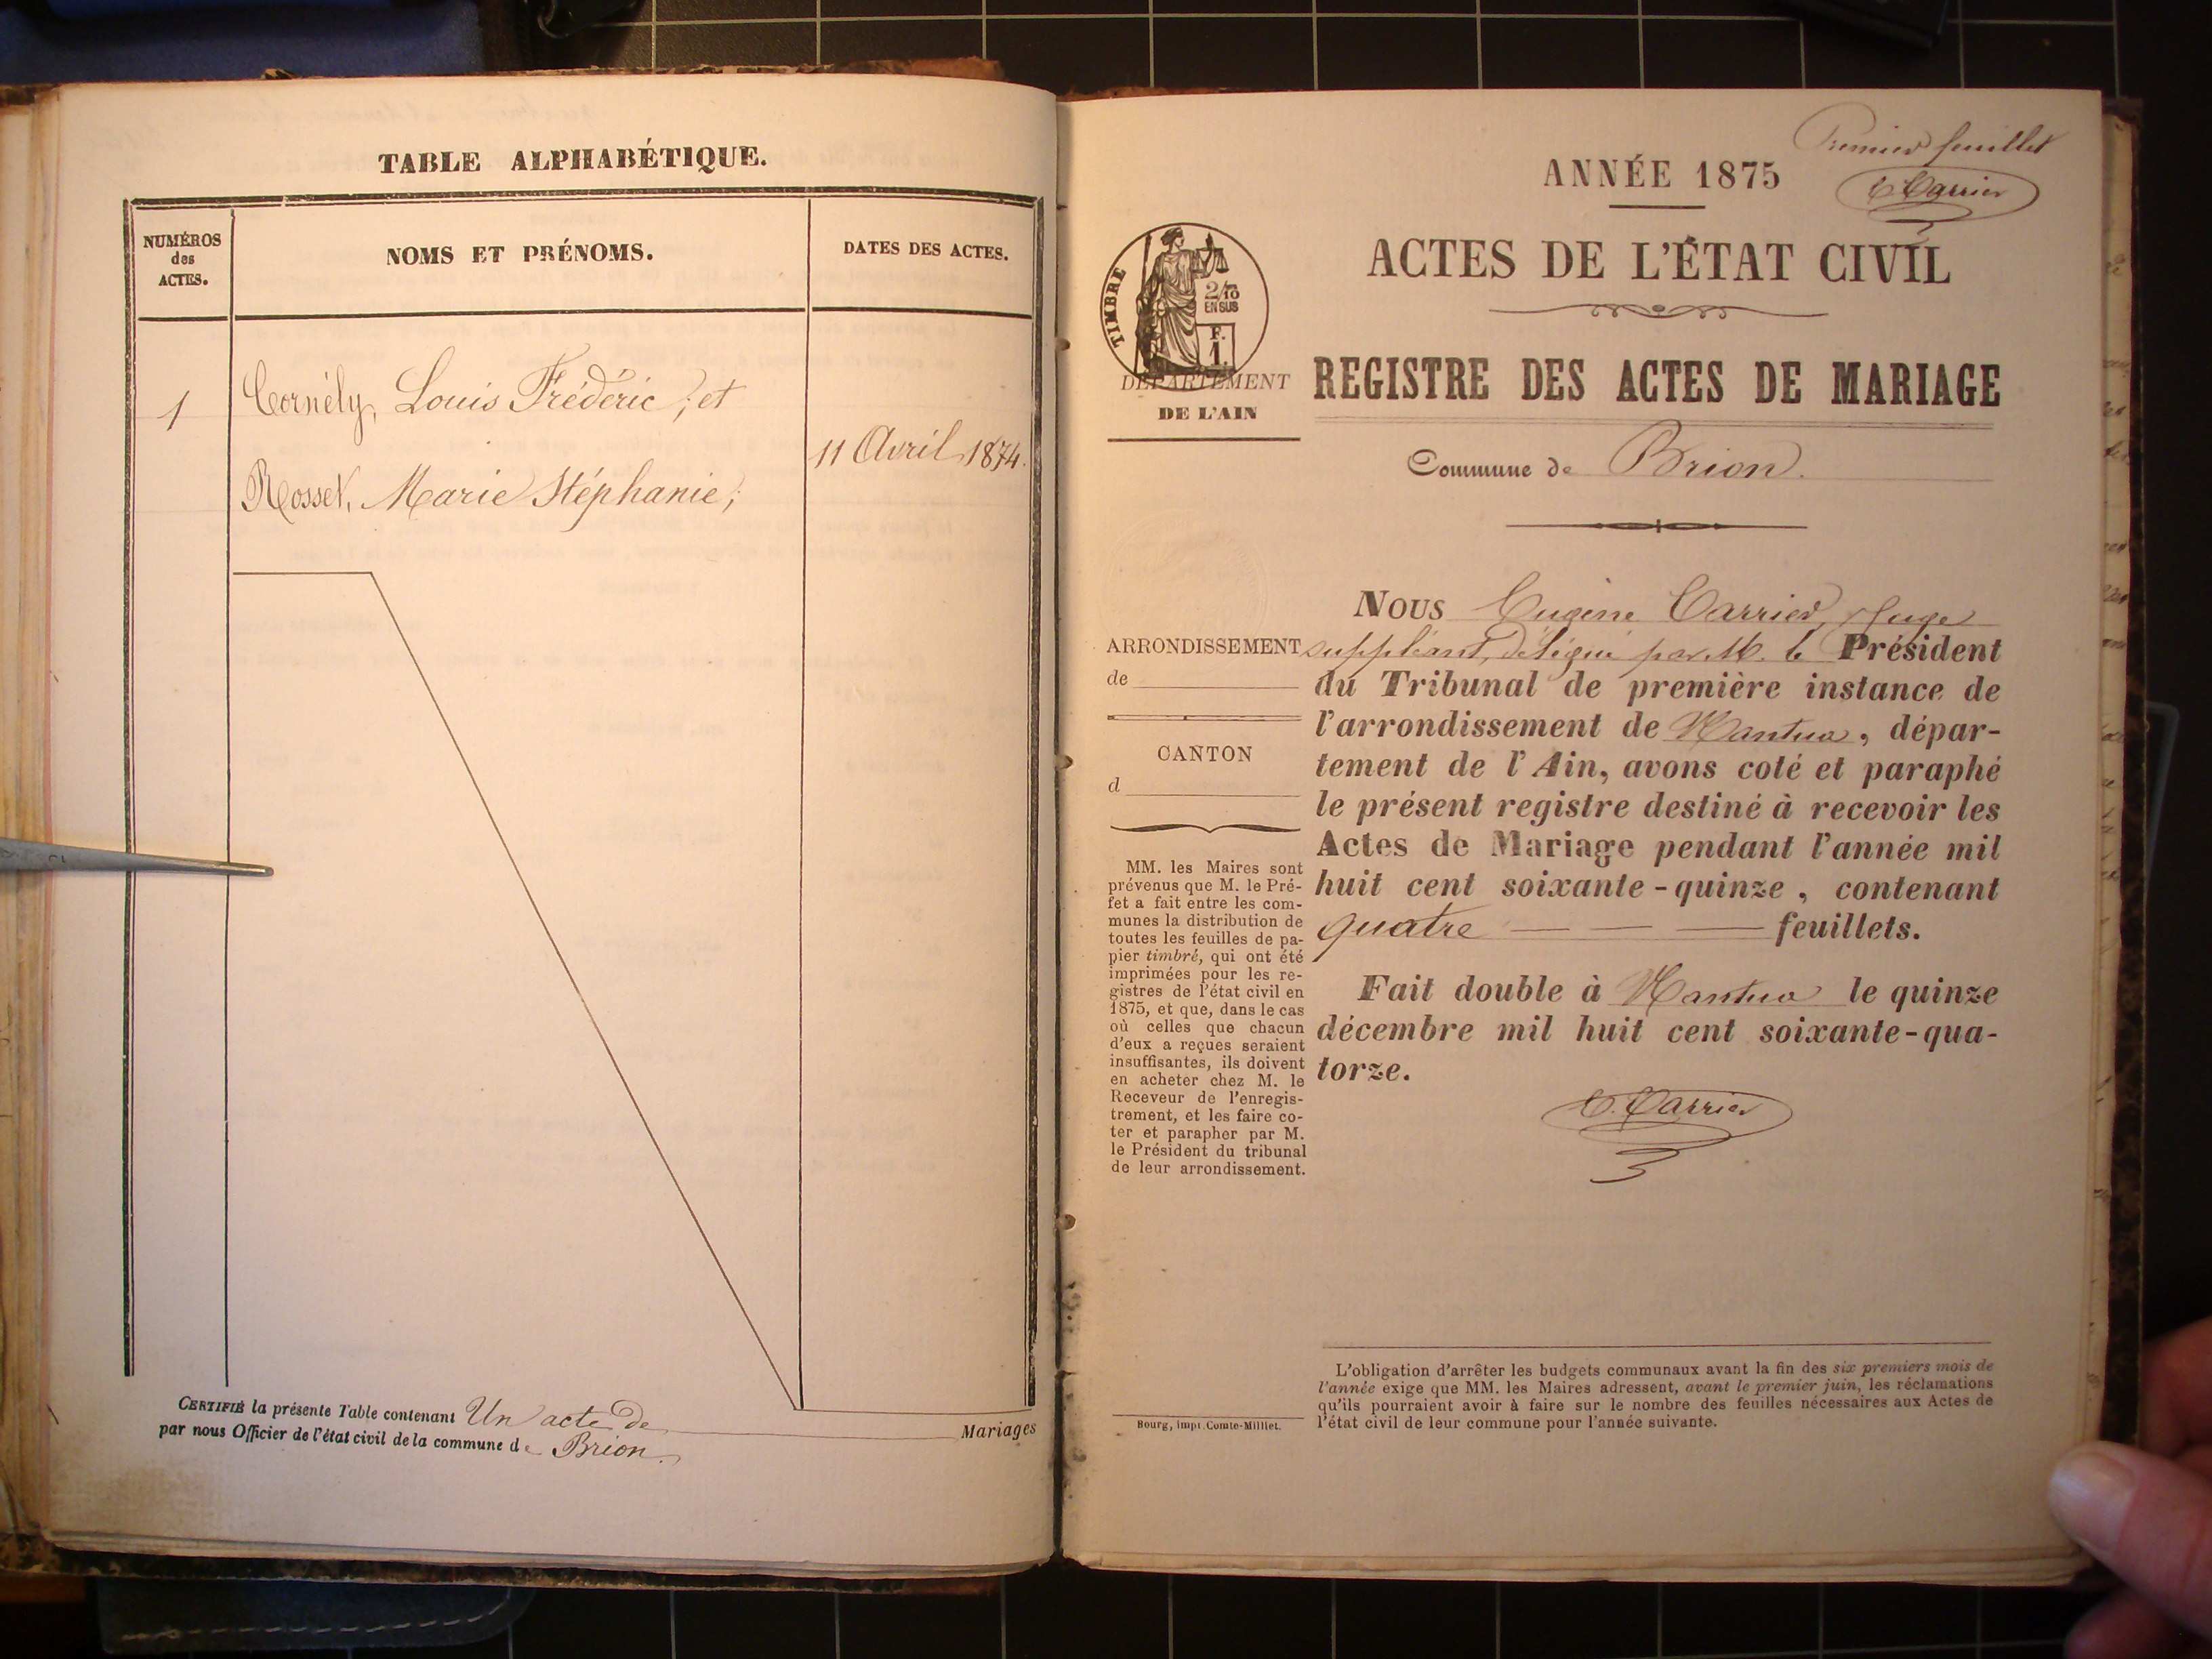 TABLE ALPHABÉTIQUE.
NUMÉROS
des
ACTES.
NOMS ET PRÉNOMS.
DATES DES ACTES.
1
Cornély, Louis Frédéric, et
11 Avril 1874.
Rosset, Marie Stéphanie;
CERTIFIÉ la présente Table contenant Un acte de Mariages
par nous Officier de l'état civil de la commune de Brion.
Premier feuillet
E. Carrier
ANNÉE 1875
ACTES DE L'ÉTAT CIVIL
TIMBRE
2/10
EN SUS
F.
1.
DÉPARTEMENT
DE L'AIN
REGISTRE DES ACTES DE MARIAGE
Commune de Brion.
ARRONDISSEMENT
de
CANTON
d
MM. les Maires sont
prévenus que M. le Pré-
fet a fait entre les com-
munes la distribution de
toutes les feuilles de pa-
pier timbré, qui ont été
imprimées pour les re-
gistres de l'état civil en
1875, et que, dans le cas
où celles que chacun
d'eux a reçues seraient
insuffisantes, ils doivent
en acheter chez M. le
Receveur de l'enregis-
trement, et les faire co-
ter et parapher par M.
le Président du tribunal
de leur arrondissement.
NOUS Eugène Carrier, Juge
suppléant, délégué par M. le Président
du Tribunal de première instance de
l'arrondissement de Nantua, dépar-
tement de l'Ain, avons coté et paraphé
le présent registre destiné à recevoir les
Actes de Mariage pendant l'année mil
huit cent soixante-quinze, contenant
quatre — — — feuillets.
Fait double à Nantua le quinze
décembre mil huit cent soixante-qua-
torze.
E. Carrier
Bourg, impr. Comte-Milliet.
L'obligation d'arrêter les budgets communaux avant la fin des six premiers mois de
l'année exige que MM. les Maires adressent, avant le premier juin, les réclamations
qu'ils pourraient avoir à faire sur le nombre des feuilles nécessaires aux Actes de
l'état civil de leur commune pour l'année suivante.